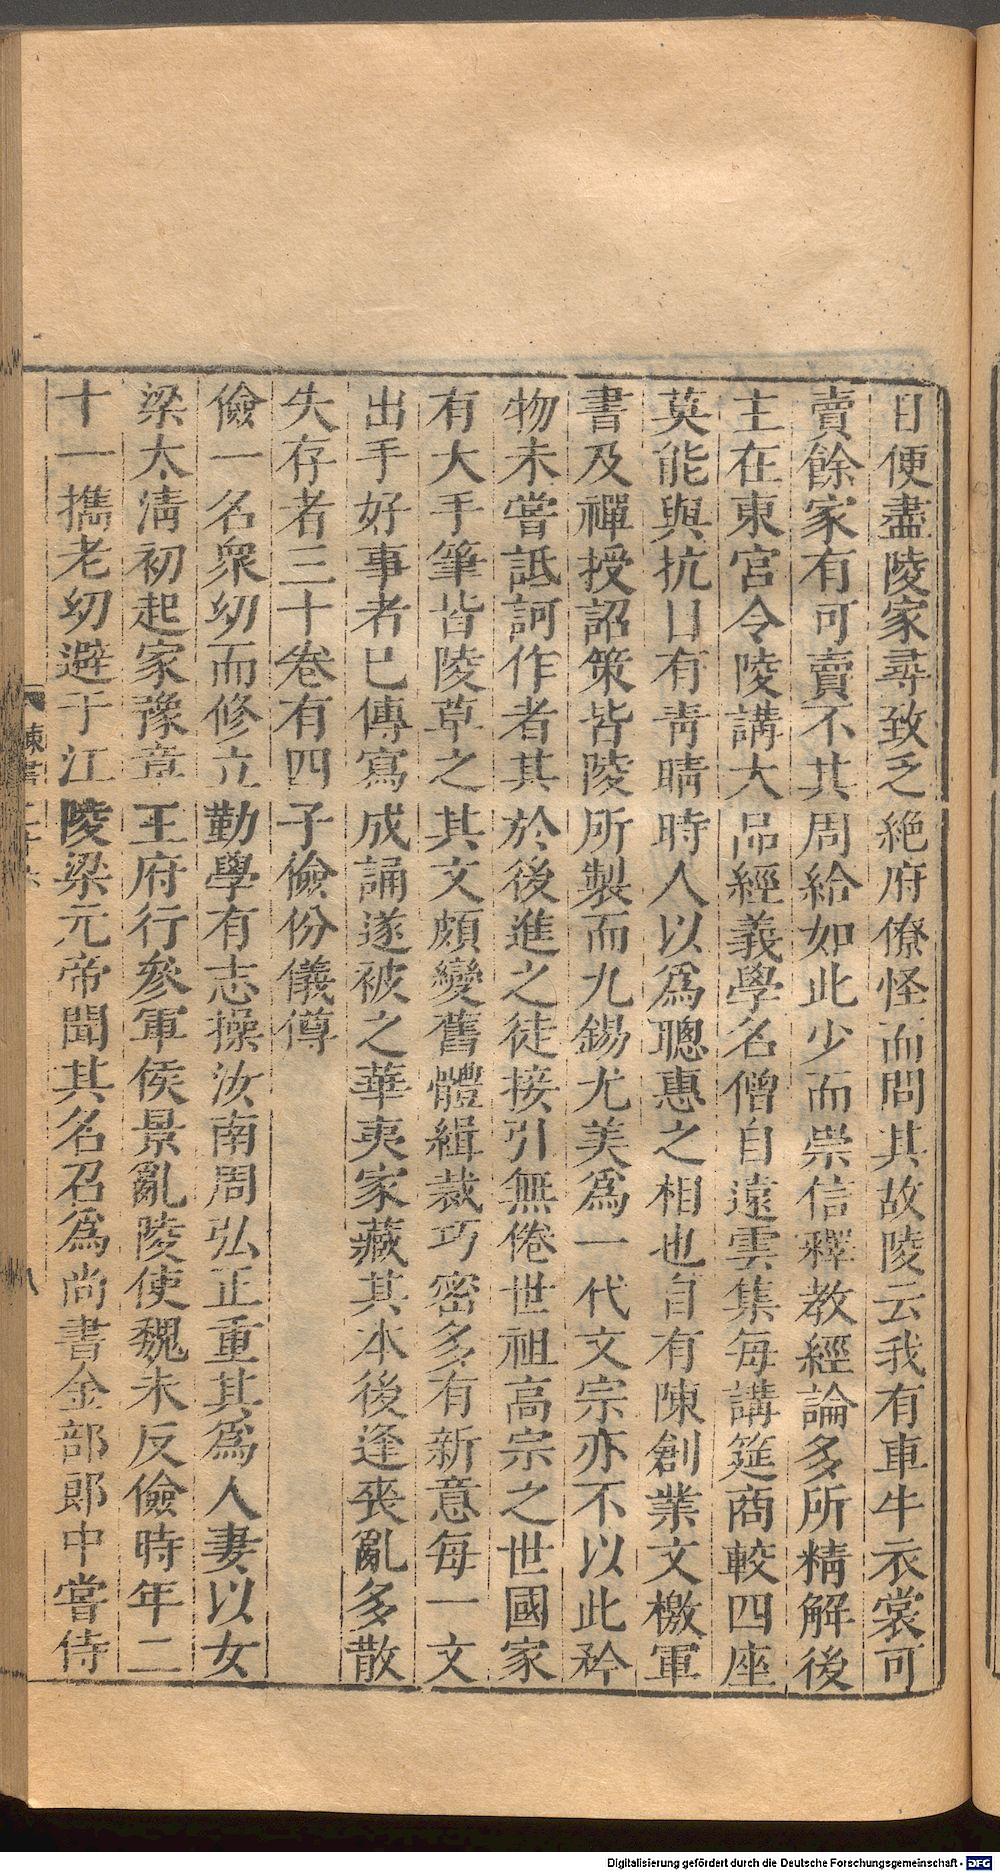 日便盡陵家尋致乏絶府僚怪而問其故陵云我有車牛衣裳可
賣餘家有可賣不其周給如此少而崇信釋教經論多所精解後
主在東宮令陵講大品經義學名僧自遠雲集每講筵商較四座
莫能與抗目有青睛時人以爲聰惠之相也自有陳創業文檄軍
書及禪授詔策皆陵所製而九錫尤美爲一代文宗亦不以此矜
物未嘗詆訶作者其於後進之徒接引無倦世祖高宗之世國家
有大手筆皆陵草之其文頗變舊體緝裁巧密多有新意每一文
出手好事者已傳寫成誦遂被之華夷家藏其本後逢喪亂多散
失存者三十卷有四子儉份儀僔
儉一名衆幼而修立勤學有志操汝南周弘正重其爲人妻以女
梁太淸初起家豫章王府行參軍侯景亂陵使魏未反儉時年二
十一攜老幼避于江陵梁元帝聞其名召爲尚書金部郎中嘗侍
陳書二十六
八
Digitalisierung gefördert durch die Deutsche Forschungsgemeinschaft - DFG